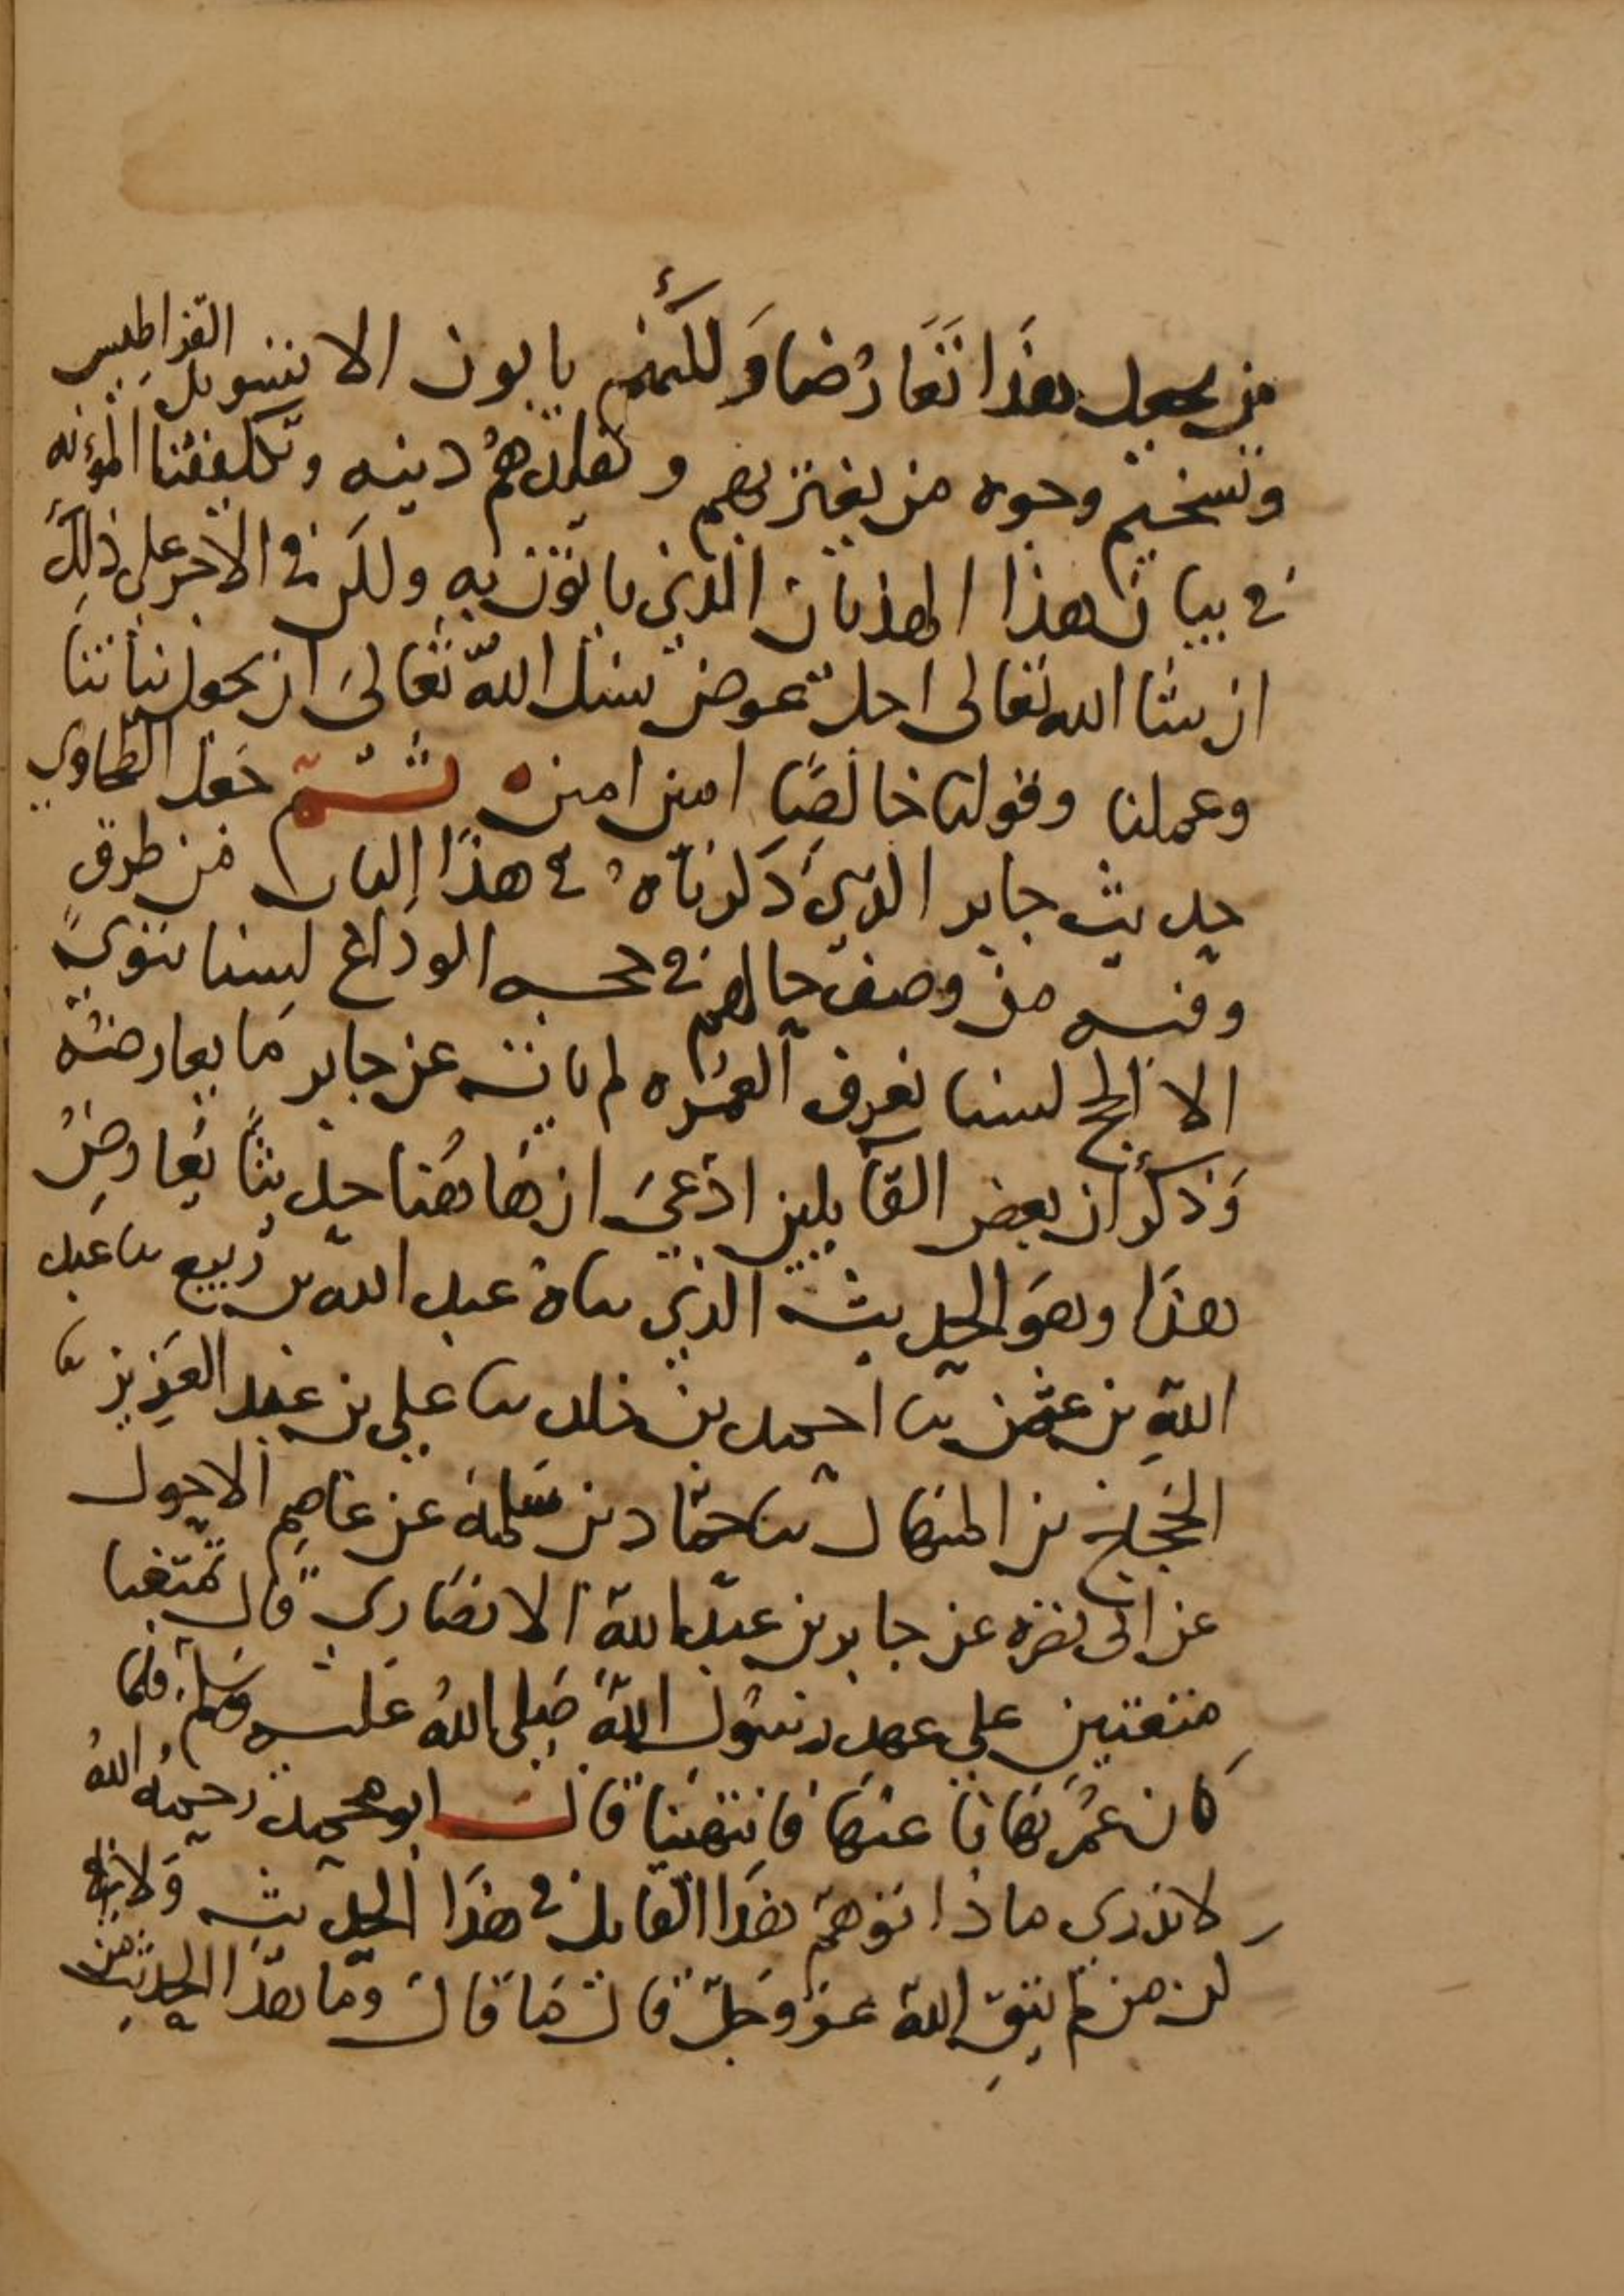 من يجعل هذا تعارضا ولكنهم يابون الا تسويد القراطيس
وتسخيم وجوه من يغتر بهم و يقلدهم دينه وتكليفنا المؤنه
في بيان هذا الهذيان الذي ياتون به ولكن في الاجر على ذلك
ان شا الله تعالى اجل عوض نسل الله تعالى ان يجعل نياتنا
وعملنا وقولنا خالصا امين امين ثم جعل الطحاوي
حديث جابر الذي ذكرناه في هذا الباب من طرق
وفيه من وصف حالهم في حجه الوداع لسنا ننوي
الا الحج لسنا نعرف العمره لم ياته عن جابر ما يعارضه
وذكر ان بعض القايلين ادعى ان هاهنا حديثا يعارض
هذا وهو الحديث الذي ناه عبد الله بن ربيع نا عبد
الله بن عثمن نا احمد بن خلد نا علي بن عبد العزيز نا
الحجاج بن المنهال نا حماد بن سلمة عن عاصم الاحول
عن ابي نضره عن جابر بن عبد الله الانصاري قال تمتعنا
متعتين على عهد رسول الله صلى الله عليه وسلم فلما
كان عمر نهانا عنها فانتهينا قال ابو محمد رحمه الله
لا ندري ماذا توهم هذا القايل في هذا الحديث
لن من لم يتق الله عز وجل قال ما قال وما هذا الحديث من